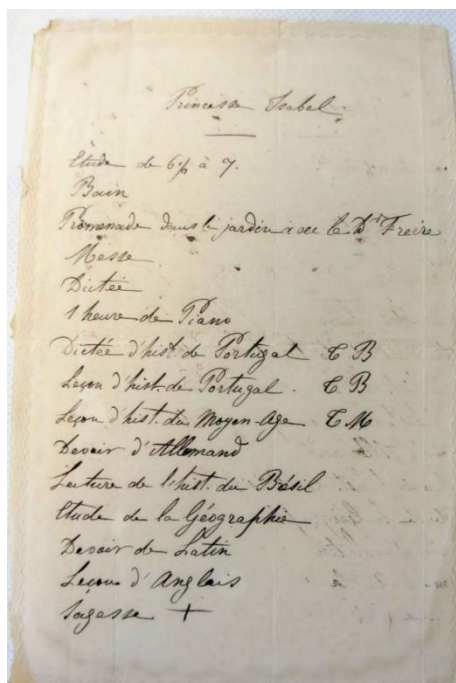 Princesse Isabel.
Etude de 6½ à 7.
Bain
Promenade dans le jardin avec le Dr Freire
Messe
Dictée
1 heure de Piano
Dictée d'hist. de Portugal T B
Leçon d'hist. de Portugal. T B
Leçon d'hist. du Moyen-Age T M
Devoir d'Allemand
Lecture de l'hist. du Bésil
Etude de la Géographie
Devoir de Latin
Leçon d'Anglais
Sagesse +